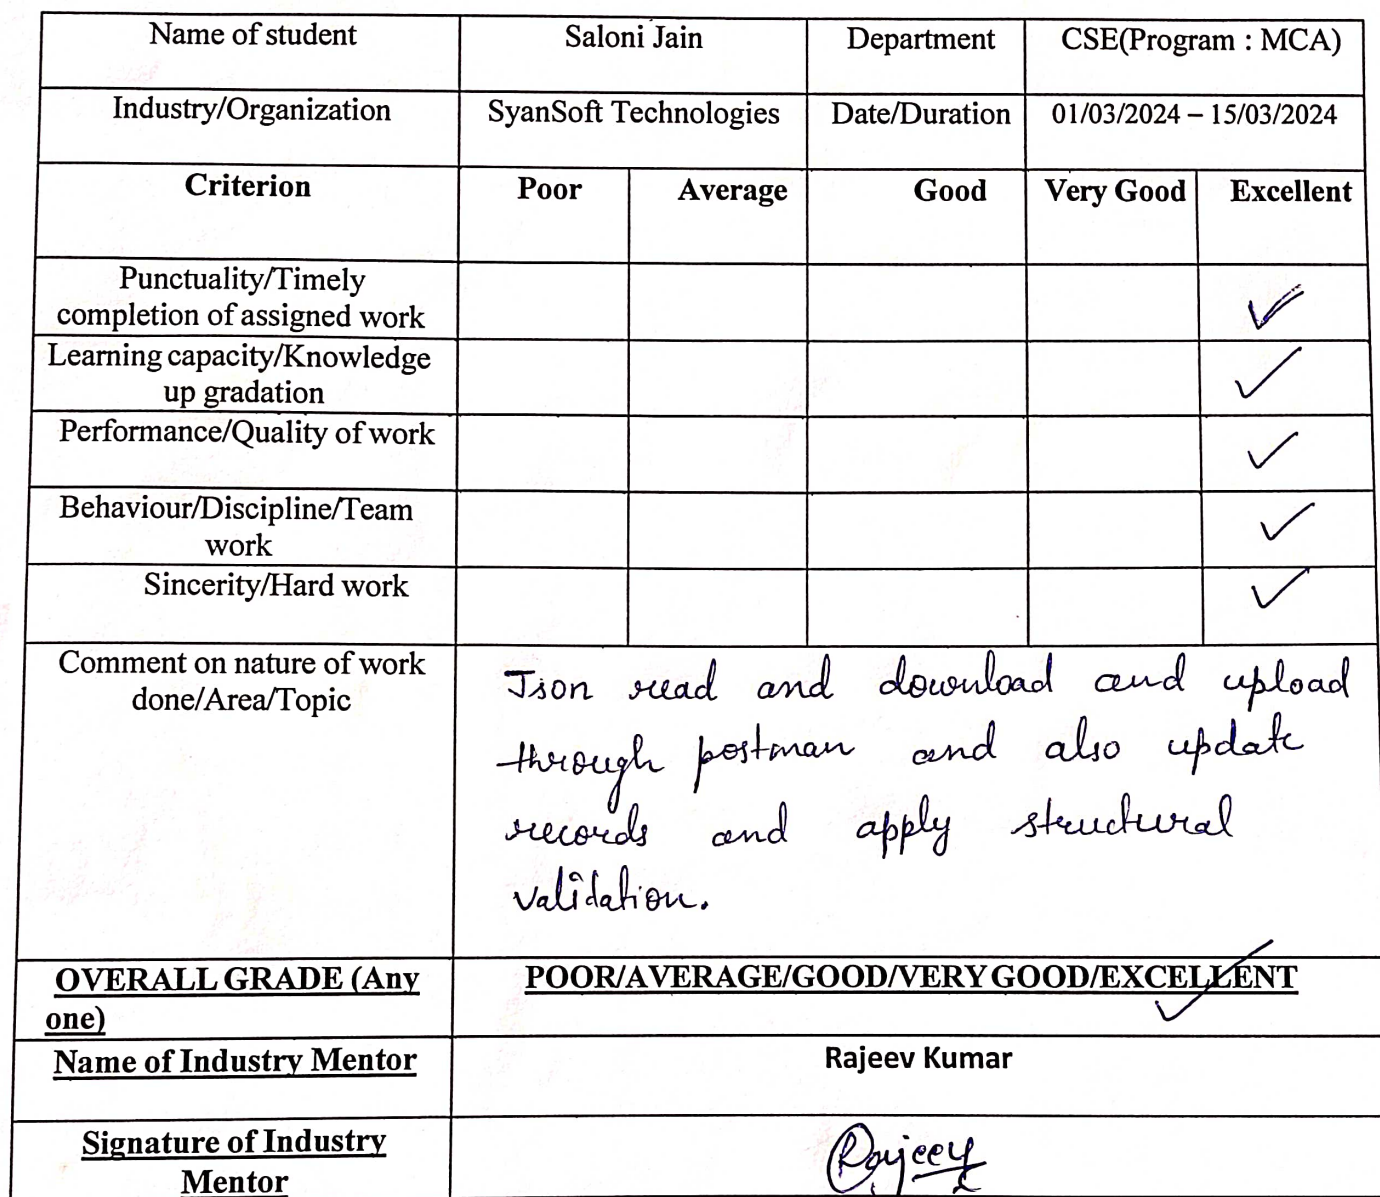 Name of student Saloni Jain Department CSE(Program : MCA)
Industry/Organization SyanSoft Technologies Date/Duration 01/03/2024 – 15/03/2024
Criterion Poor Average Good Very Good Excellent
Punctuality/Timely
completion of assigned work ✓
Learning capacity/Knowledge
up gradation ✓
Performance/Quality of work ✓
Behaviour/Discipline/Team
work ✓
Sincerity/Hard work ✓
Comment on nature of work
done/Area/Topic
Json read and download and upload
through postman and also update
records and apply structural
validation.
OVERALL GRADE (Any
one)
POOR/AVERAGE/GOOD/VERY GOOD/EXCELLENT ✓
Name of Industry Mentor Rajeev Kumar
Signature of Industry
Mentor
Rajeev